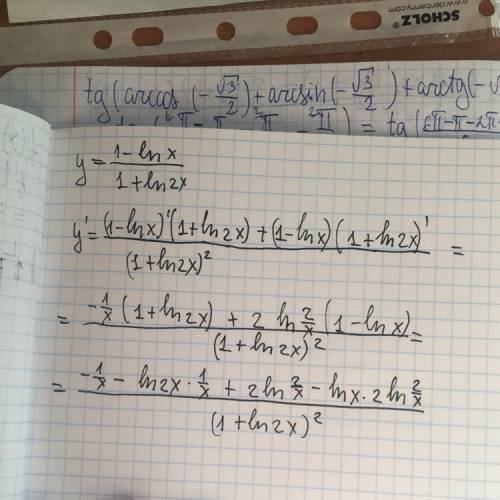 SCHOLZ
www.denberry.com
tg(arccos(-√3/2)+arcsin(-√3/2)+arctg(-√
= tg(
y = (1-ln x)/(1+ln2x)
y' = ((1-ln x)'(1+ln 2x)+(1-lnx)(1+ln2x)')/(1+ln2x)² =
= (-1/x(1+ln2x) + 2 ln 2/x (1-ln x))/(1+ln2x)² =
= (-1/x - ln2x·1/x + 2ln 2/x - lnx·2ln 2/x)/(1+ln2x)²